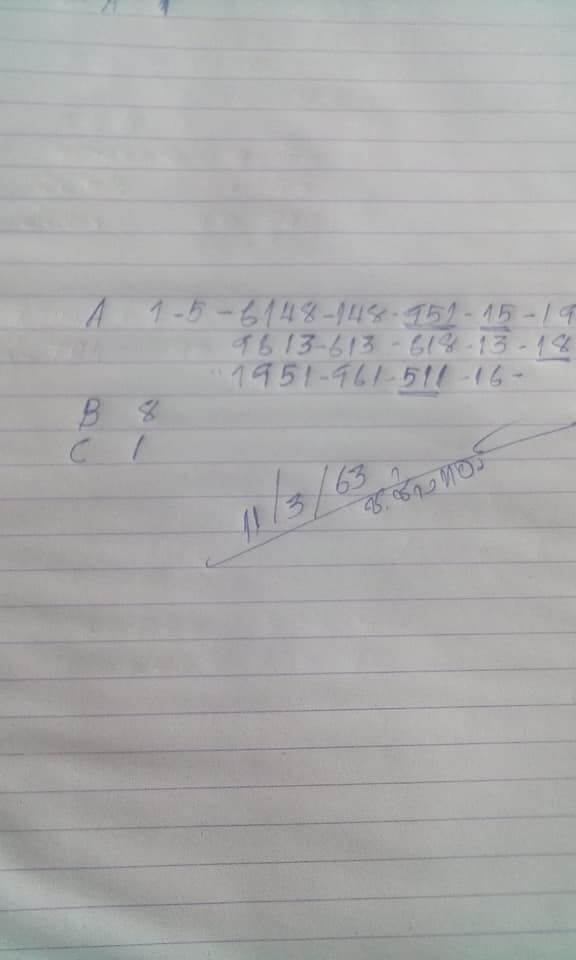 A 1-5-6148-148-951-15-19
9613-613-618-13-18
1951-961-511-16-
B 8
C 1
11/3/63